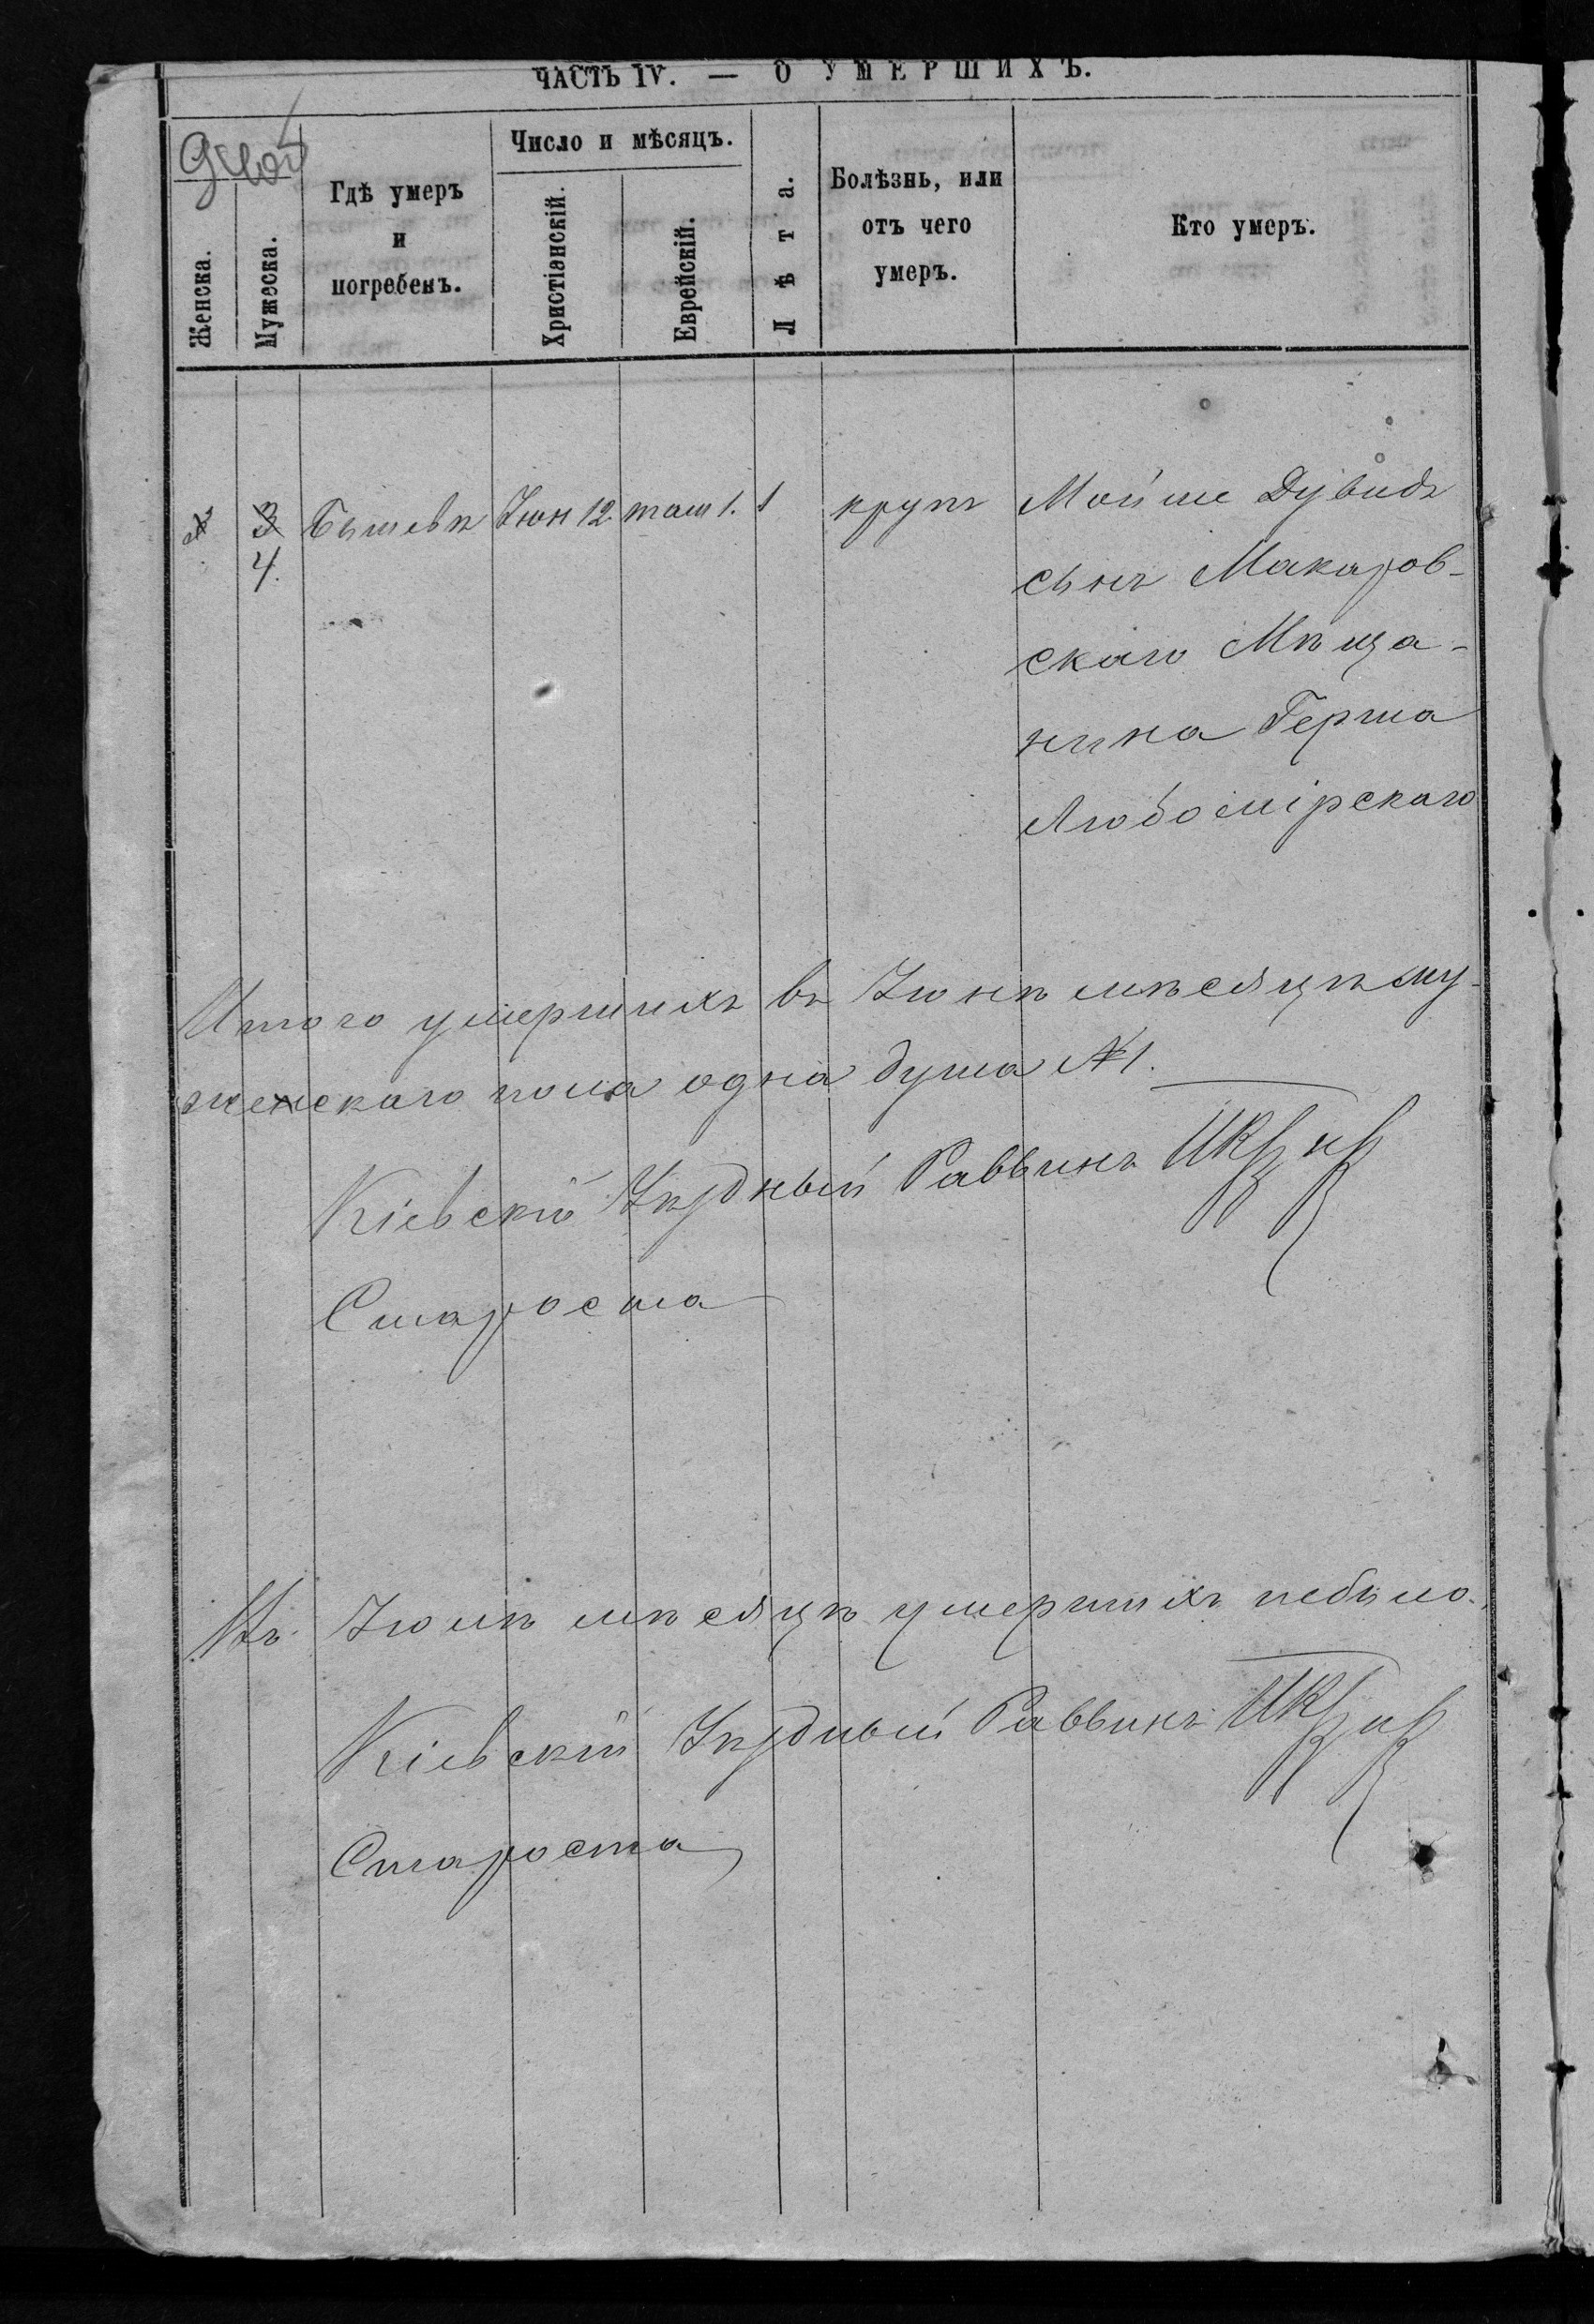 ЧАСТЬ IV. — О УМЕРШИХЪ.
Женска.
Мужеска.
Гдѣ умеръ
и
погребенъ.
Число и мѣсяцъ.
Христіанскій.
Еврейскій.
Лѣта.
Болѣзнь, или
отъ чего
умеръ.
Кто умеръ.
3 Бышевѣ Іюн 12. таш 1. 1 крупъ Мойше Дувидъ
4.
сынъ Макаров-
скаго Мѣща-
нина Герша
Любомірскаго
Итого умершихъ въ Іюнѣ мѣсяцѣ му-
жескаго пола одна душа №1.
Кіевскій Уѣздный Раввинъ
Староста
Въ Іюлѣ мѣсяцѣ умершихъ небыло.
Кіевскій Уѣздный Раввинъ
Староста